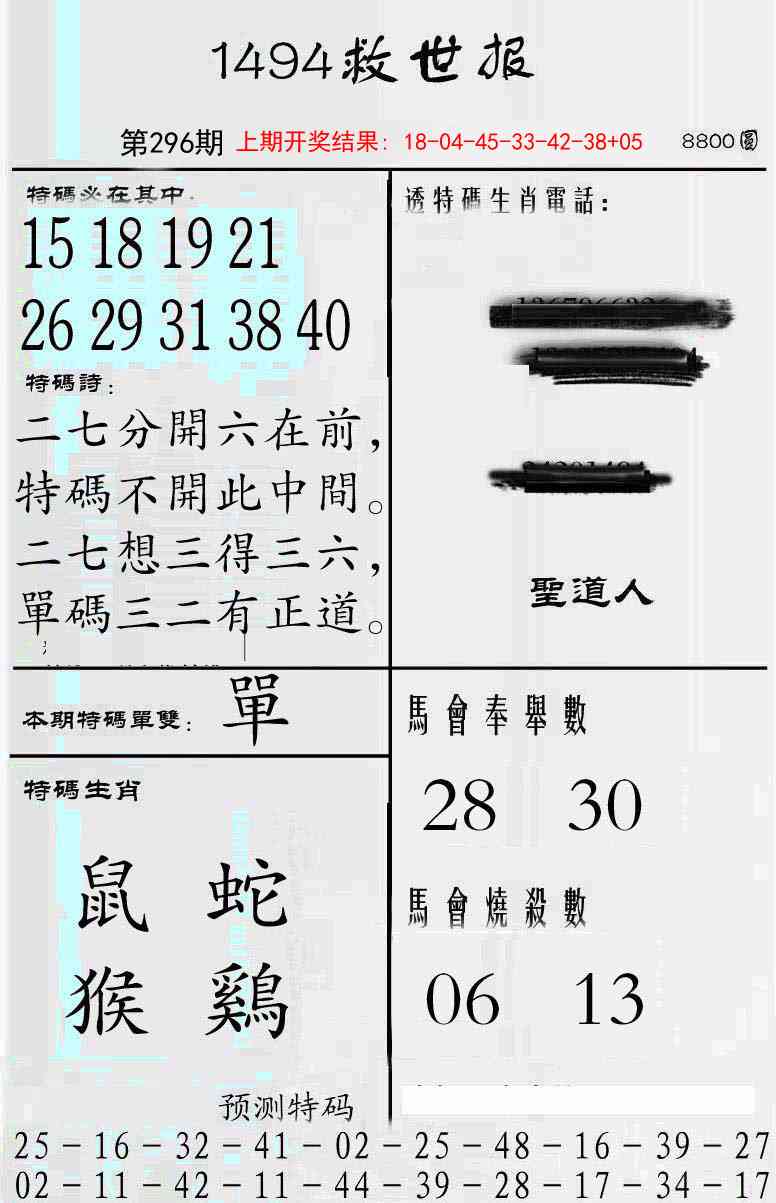 1494救世报
第296期 上期开奖结果：18-04-45-33-42-38+05 8800圓
特碼必在其中：
15 18 19 21
26 29 31 38 40
特碼詩：
二七分開六在前，
特碼不開此中間。
二七想三得三六，
單碼三二有正道。
本期特碼單雙： 單
特碼生肖
鼠 蛇
猴 鷄
透特碼生肖電話：
聖道人
馬會奉舉數
28 30
馬會燒殺數
06 13
预测特码
25－16－32－41－02－25－48－16－39－27
02－11－42－11－44－39－28－17－34－17